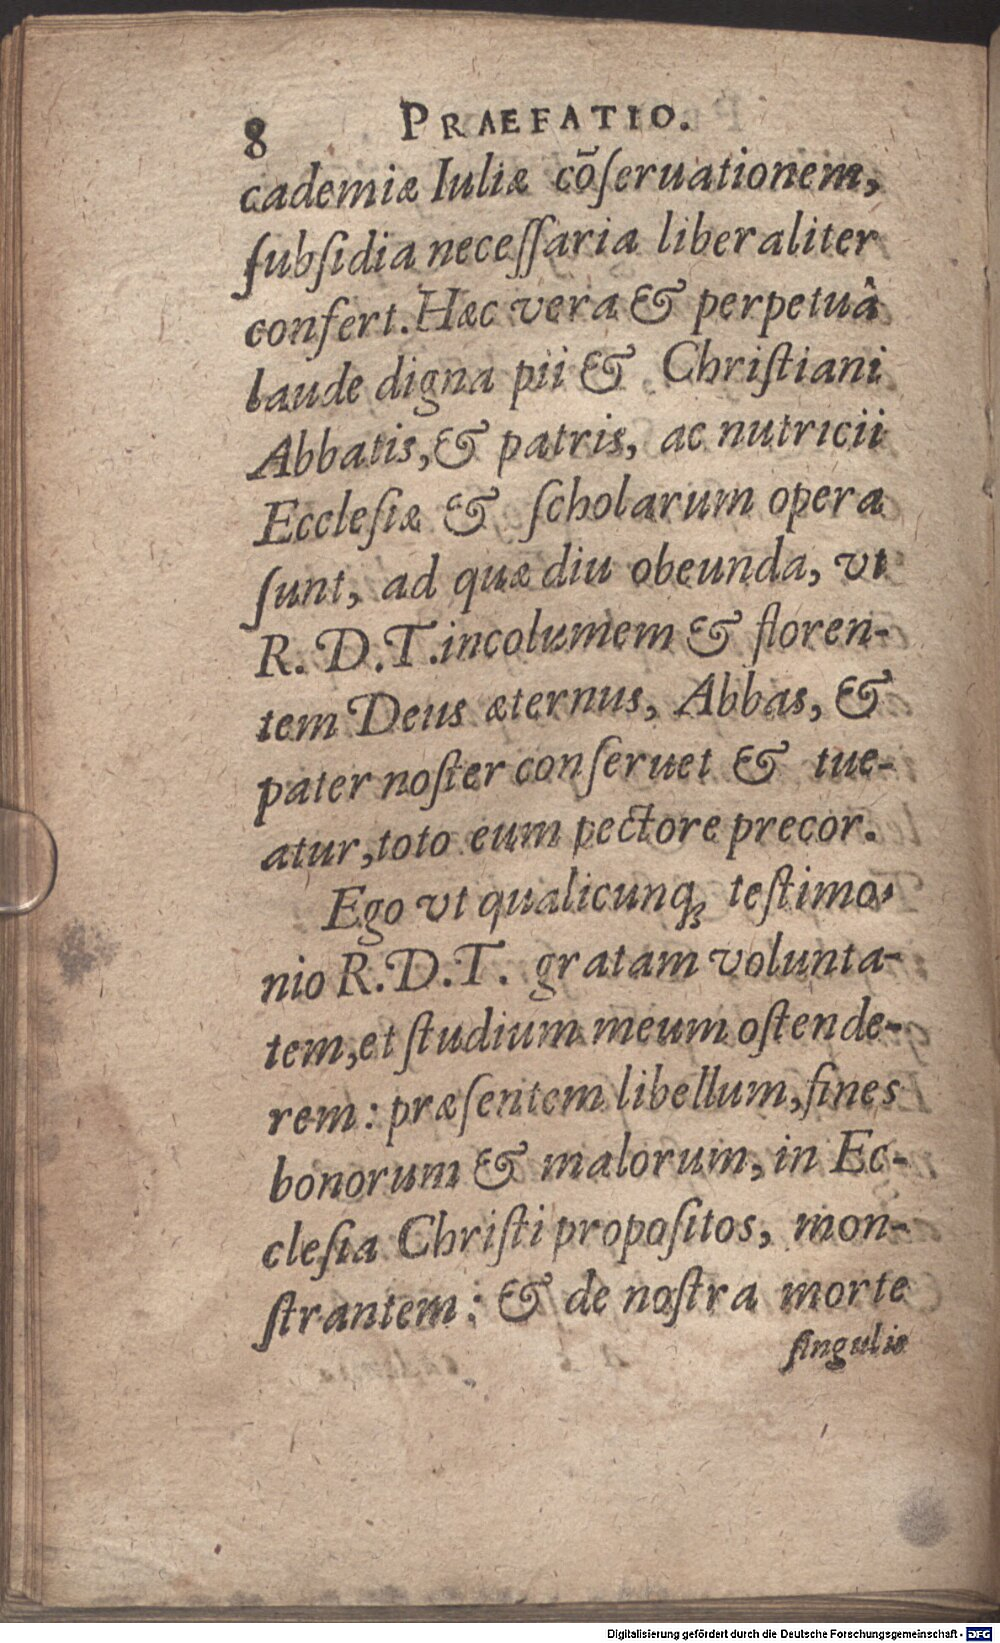 8 PRAEFATIO.
cademiæ Iuliæ cõſeruationem,
ſubſidia neceſſaria liberaliter
confert. Hæc vera & perpetuâ
laude digna pii & Chriſtiani
Abbatis, & patris, ac nutricii
Eccleſiæ & ſcholarum opera
ſunt, ad quæ diu obeunda, vt
R. D. T. incolumem & floren-
tem Deus æternus, Abbas, &
pater noſter conſeruet & tue-
atur, toto eum pectore precor.
Ego vt qualicunqꝫ teſtimo-
nio R. D. T. gratam volunta-
tem, et ſtudium meum oſtende-
rem: præſentem libellum, fines
bonorum & malorum, in Ec-
cleſia Chriſti propoſitos, mon-
ſtrantem: & de noſtra morte
ſingulis
Digitalisierung gefördert durch die Deutsche Forschungsgemeinschaft - DFG